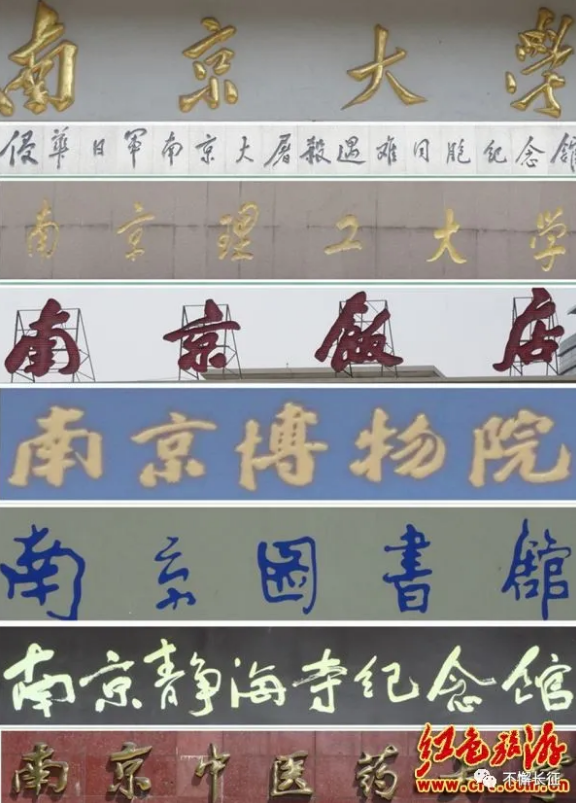 南京大學
侵华日军南京大屠殺遇难同胞纪念館
南京理工大学
南京飯店
南京博物院
南京图書館
南京静海寺纪念馆
南京中医药大学
红色旅游
不懈长征
www.crt.com.cn